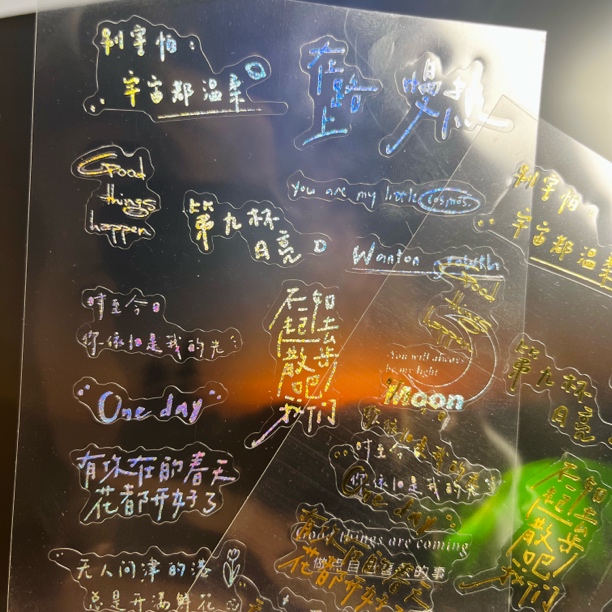 别害怕：
宇宙都温柔
在路上
慢热
Good
things
happen
第九杯
月亮
you are my little cosmos
Wanton youth
时至今日
你依旧是我的光
一起去散步吧
我们
One day
有你在的春天
花都开好了
无人问津的港
总是开满鲜花
别害怕：
宇宙都温柔
Good
things
You will always
be my light
Moon
第九杯
月亮
时至今日
你依旧是我的光
One day
Good things are coming
做些自己喜欢的事
有你在的春天
花都开好了